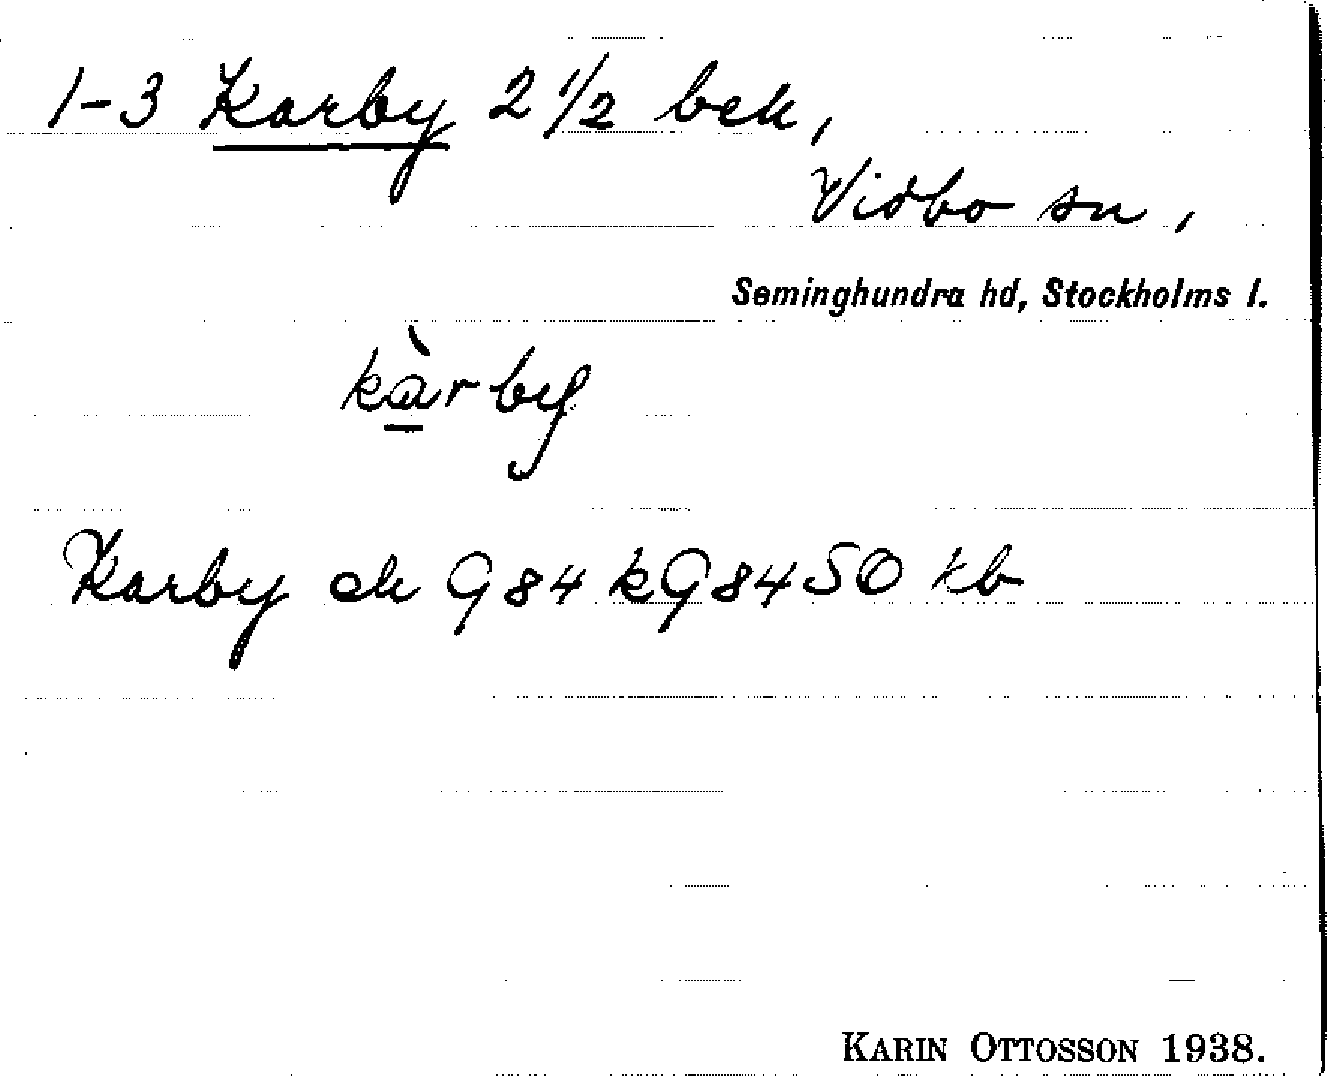 1-3 Karby 2 1/2 bek,
Vidbo sn,
Seminghundra hd, Stockholms l.
kàrby
Karby ek G84 kG8450 kb
KARIN OTTOSSON 1938.